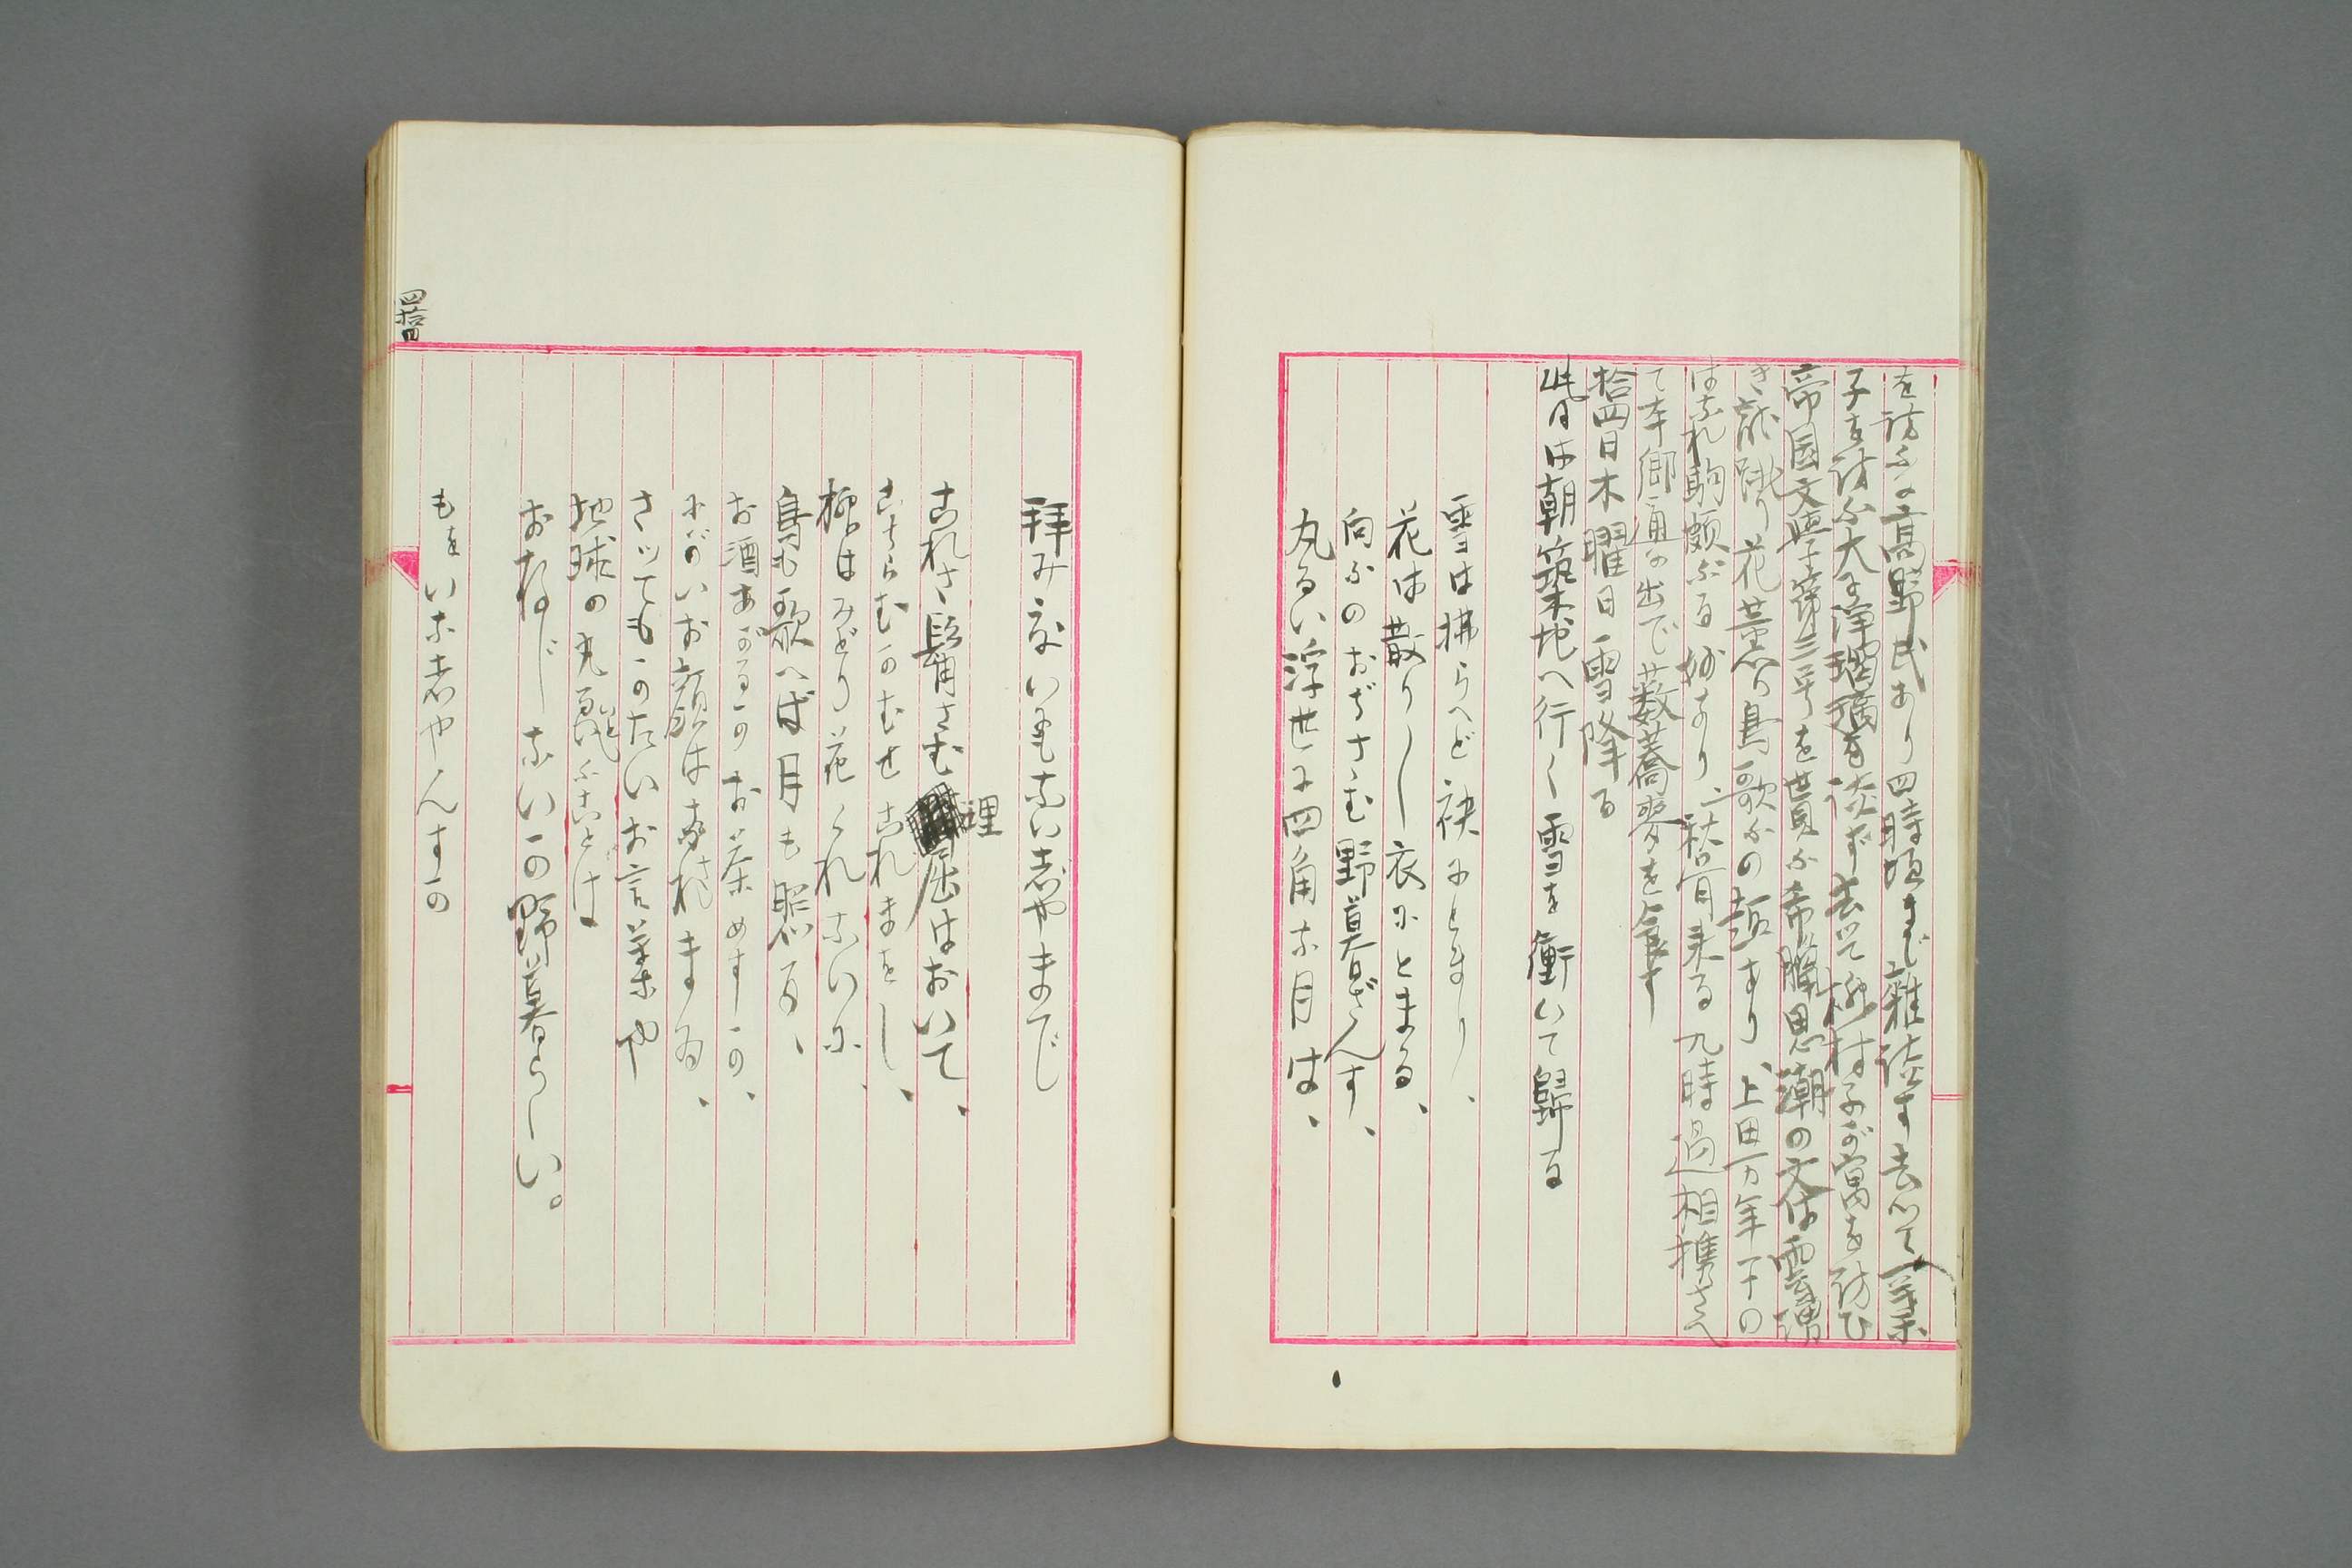 を訪ふに高野氏あり四時頃まで雑話す去つて一葉
子を訪ふ大に浄瑠璃を談ず去つて柳村子が寓を訪ひ
帝国文学第三号を貰ふ帝職思潮の文は雲湧
き龍跳り花薫り鳥歌ふの趣あり、上田万年一千の
はなれ駒頗ぶる妙なり、秋骨来る九時過相携さへ
て本郷通に出で藪蕎麦を食す
拾四日木曜日雪降る
此日は朝築地へ行く雪を衝いて歸る
雪は拂らへど袂にとまり、
花は散りし衣にとまる、
向ふのおぢさむ野暮ざんす、
丸るい浮世に四角な月は、
拜みないもないぢやまで
これさ髯さむ理屈はおいて、
こちらむかむせこれまをし、
柳はみどり花くれないに、
鳥も歌へば月も照る、
お酒あがるかお茶めすか、
にがいお顔はまされまゐ、
さツてもかたいお言葉や
地球の丸るいと
おなじないか野暮らしい。
もをいなぢやんすか
四拾四